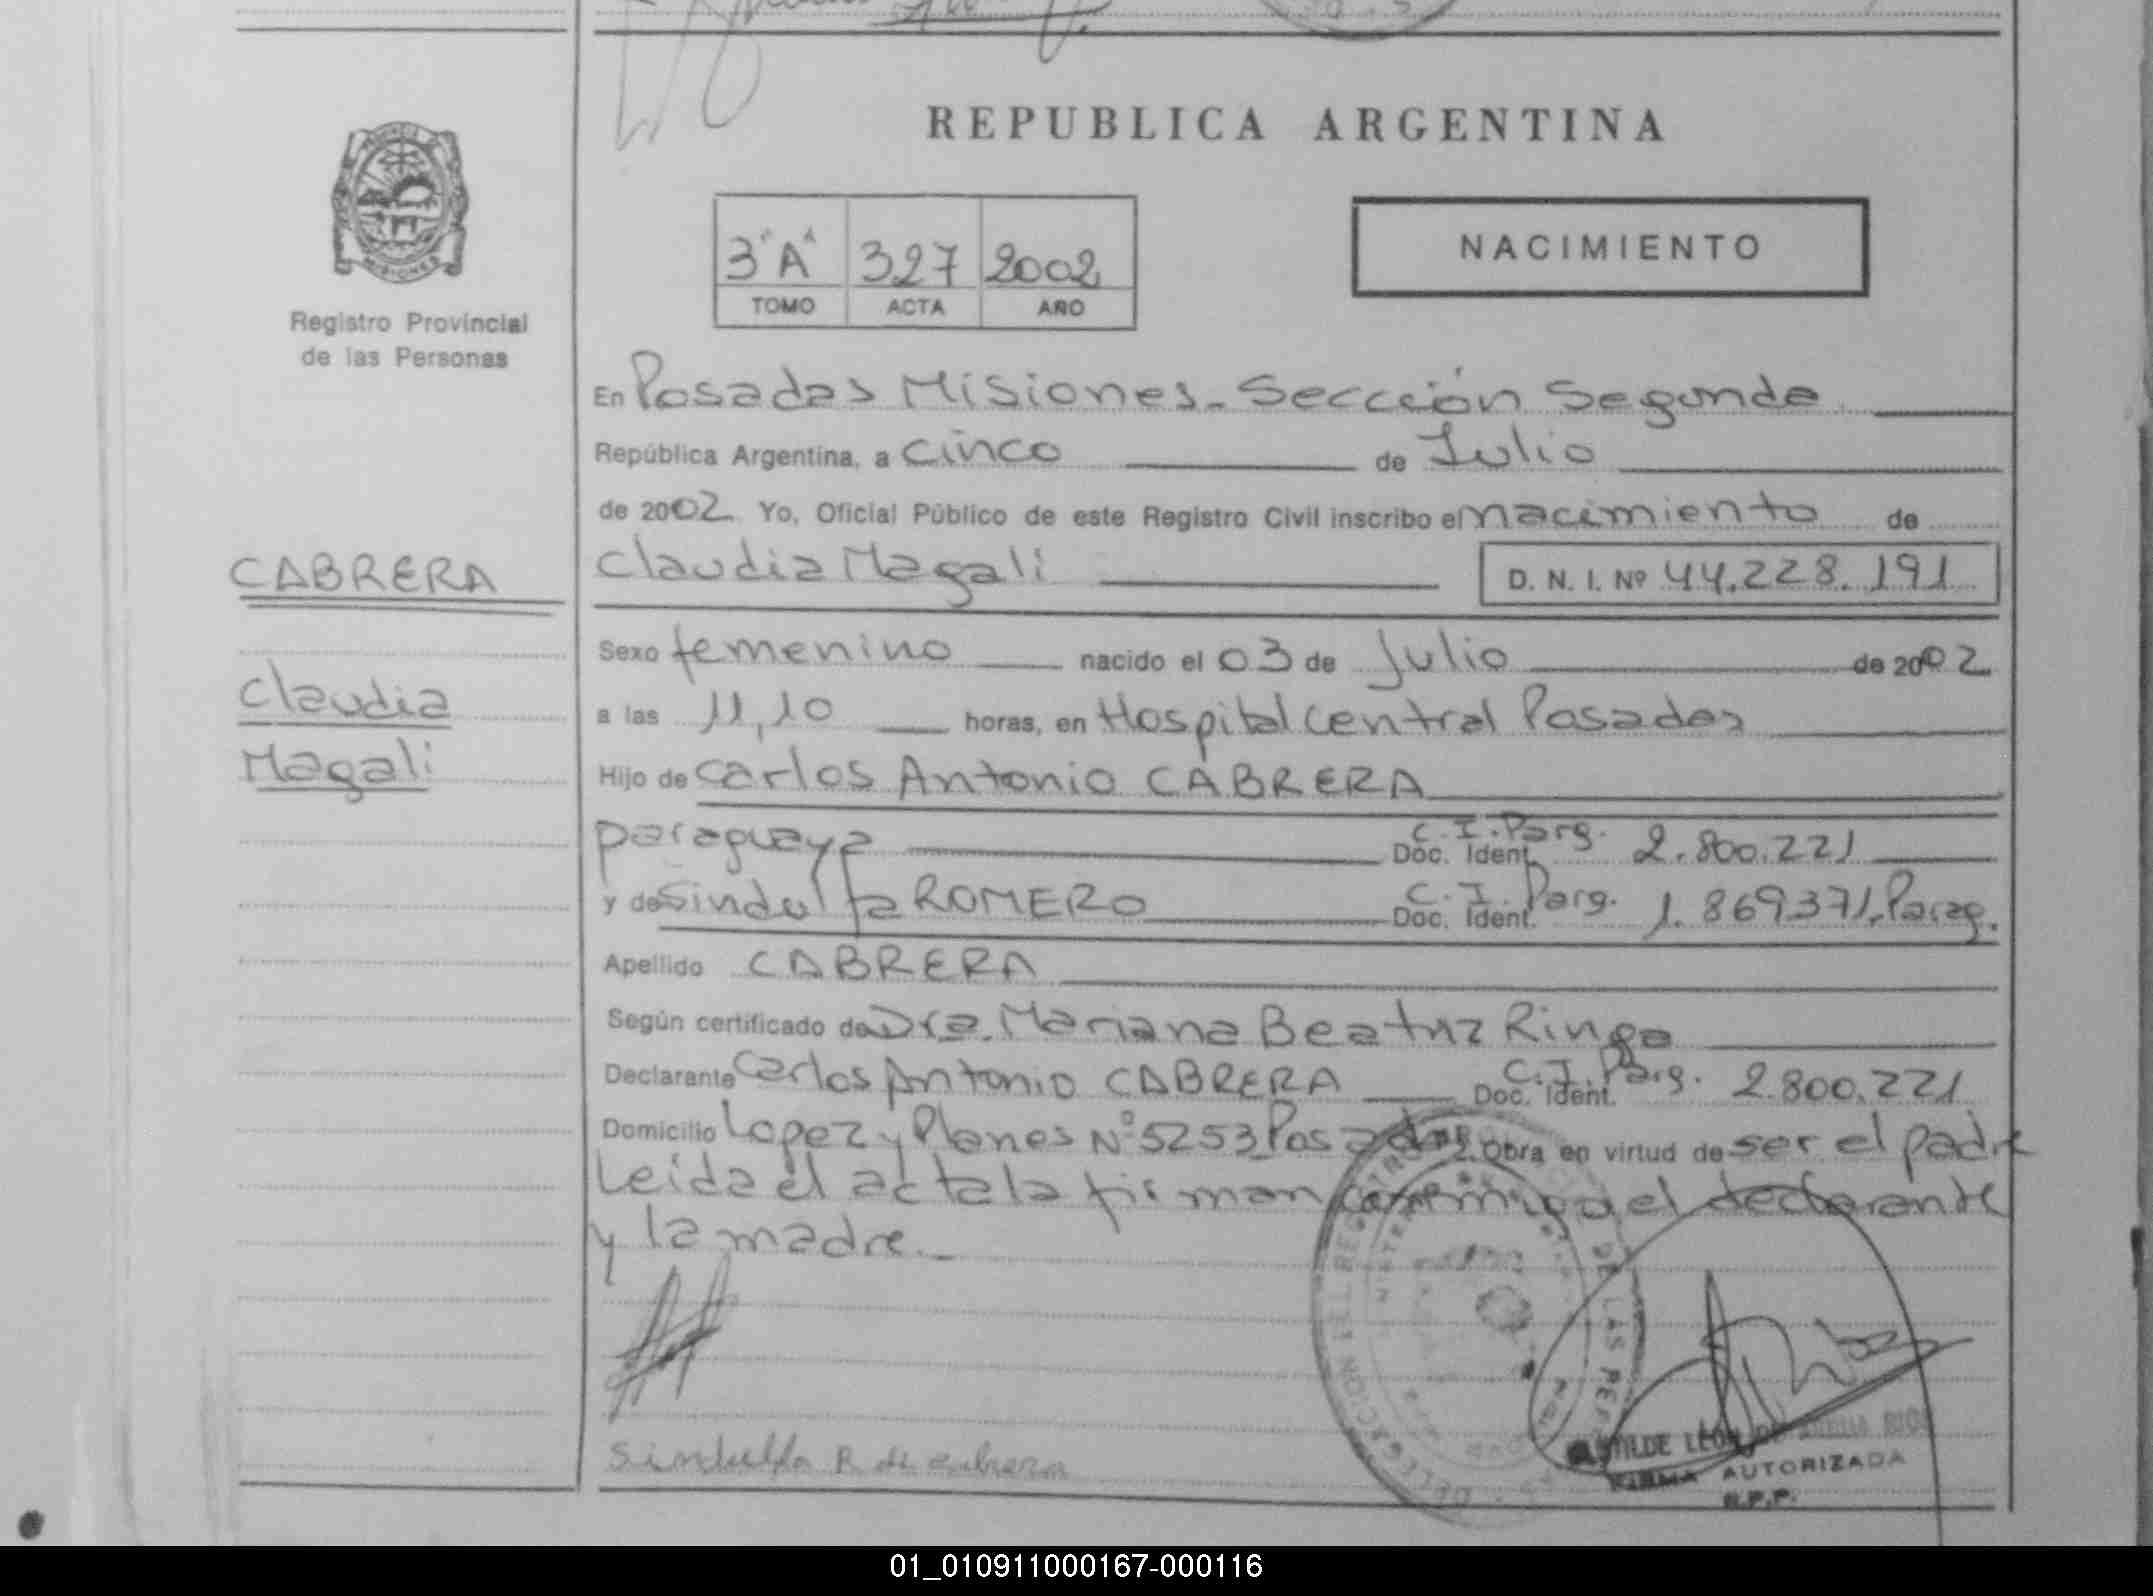 REPUBLICA ARGENTINA
Registro Provincial
de las Personas
MISIONES
3 "A" 327 2002
TOMO ACTA AÑO
NACIMIENTO
En Posadas Misiones - Sección Segunda
República Argentina, a cinco de Julio
de 2002 Yo, Oficial Público de este Registro Civil inscribo el nacimiento de
CABRERA
Claudia Magali D. N. I. Nº 44.228.191
Sexo femenino nacido el 03 de Julio de 2002
Claudia
a las 11,10 horas, en Hospital Central Posadas
Magali
Hijo de Carlos Antonio CABRERA
paraguaya C.I. Parg. Doc. Ident. 2.800.221
y de Sindulfa ROMERO C.I. Parg. Doc. Ident. 1.869371, Parag.
Apellido CABRERA
Según certificado de Dra. Mariana Beatriz Ringa
Declarante Carlos Antonio CABRERA C.I. Parg. Doc. Ident. 2.800.221
Domicilio Lopez y Planes Nº 5253 Posadas Obra en virtud de ser el padre
Leida el acta la firman conmigo el declarante
y la madre.-
Sindulfa R de cabrera
DE LAS
FIRMA AUTORIZADA
R.P.P.
01_010911000167-000116